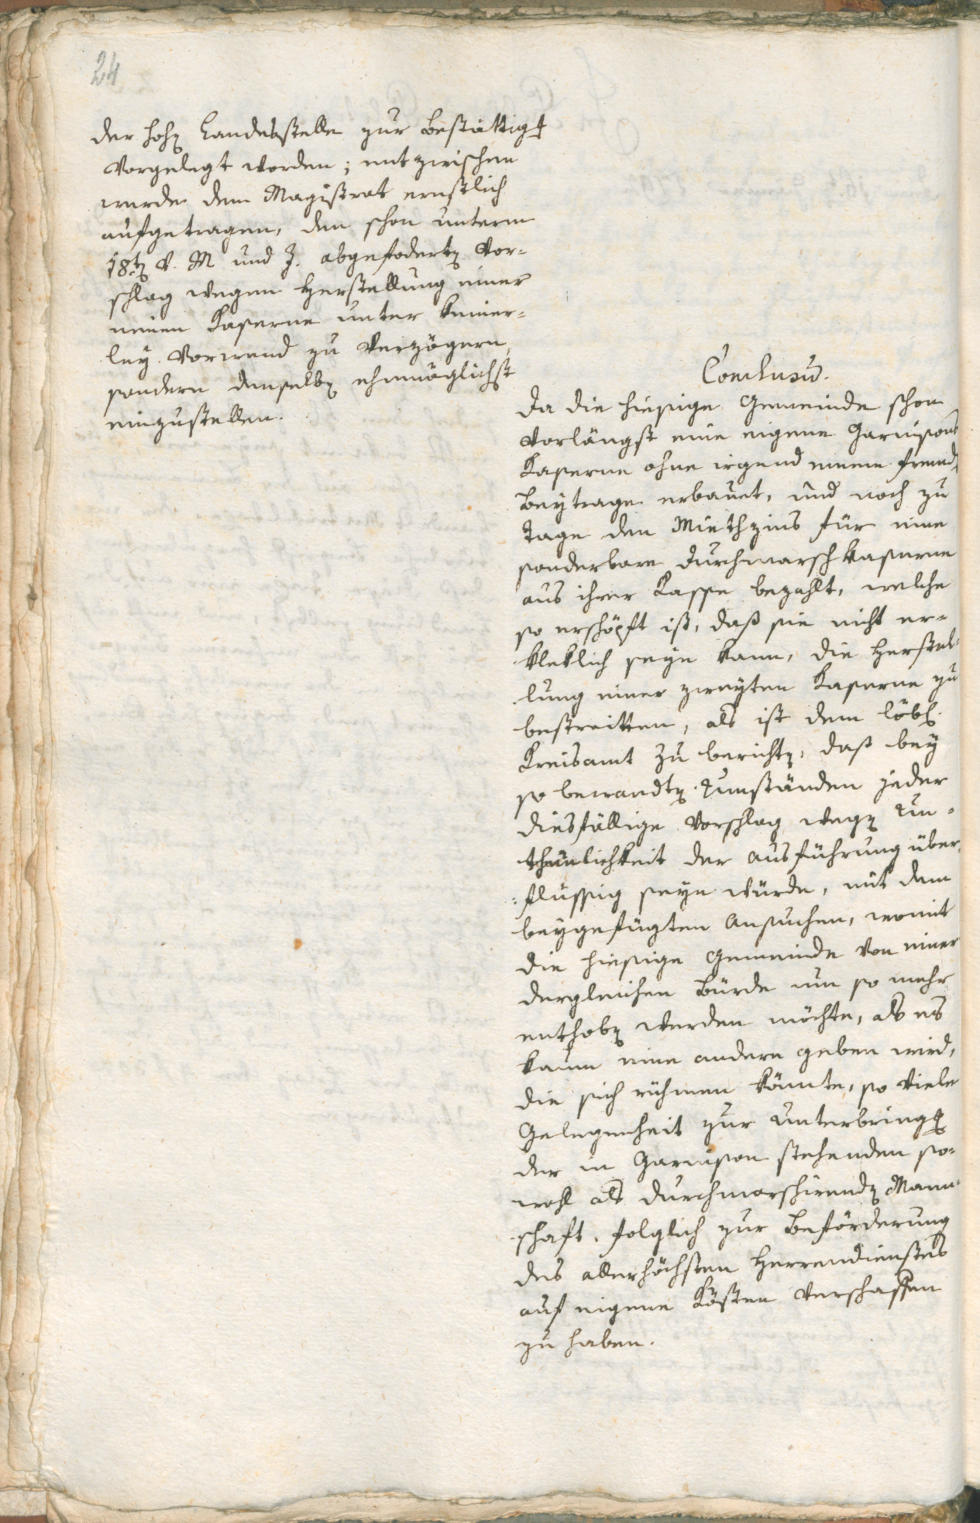 24
der hohen Landesstelle zur Bestättigung
vorgelegt worden; entzwischen
wurde dem Magistrat ernstlich
aufgetragen, den schon unterm
18ten v. M und J. abgefoderten Vor-
schlag wegen Herstellung einer
neuen Kaserne unter keiner-
ley Vorwand zu verzögern,
sondern denselben ehemöglichst
einzustellen.
Conclusum.
Da die hiesige Gemeinde schon
vorlängst eine eigene Garnisons
Kaserne ohne irgend einem fremden
Beytrage erbauet, und noch zu
Tage den Miethzins für eine
sonderbare Durchmarschkaserne
aus ihrer Kasse bezahlt, welche
so erschöpft ist, daß sie nicht er-
kleklich seyn kann, die Herstel-
lung einer zweyten Kaserne zu
bestreitten, als ist dem löbl.
Kreisamt zu berichten, daß bey
so bewandten Umständen jeder
diesfällige Vorschlag wegen Un-
thunlichkeit der Ausführung über-
flüssig seyn würde, mit dem
beygefügten Ansuchen, womit
die hiesige Gemeinde von einer
dergleichen Bürde um so mehr
enthoben werden möchte, als es
kaum eine andere geben wird,
die sich rühmen könnte, so viele
Gelegenheit zur Unterbringung
der in Garnison stehenden so-
wohl als durchmarschirenden Mann-
schaft, folglich zur Beförderung
des allerhöchsten Herrendienstes
auf eigene Kösten verschaffen
zu haben.